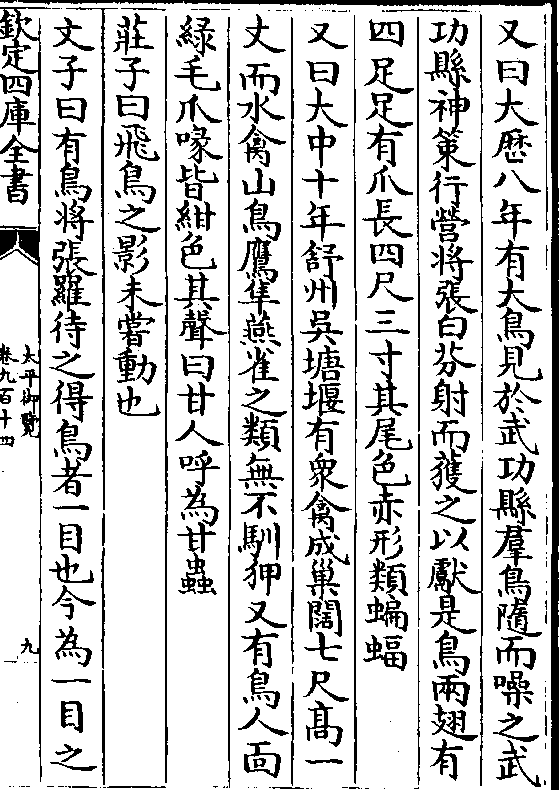 又曰大厯八年有大鳥見於武功縣羣鳥隨而噪之武
功縣神策行營將張曰芬射而獲之以獻是鳥兩翅有
四足足有爪長四尺三寸其尾色赤形類蝙蝠
又曰大中十年舒州吳塘堰有衆禽成巢闊七尺髙一
丈而水禽山鳥鷹隼燕雀之類無不馴狎又有鳥人靣
緑毛爪喙皆紺色其聲曰甘人呼為甘蟲
莊子曰飛鳥之影未嘗動也
文子曰有鳥将張羅待之得鳥者一目也今為一目之
欽定四庫全書
太平御覽
卷九百十四
九